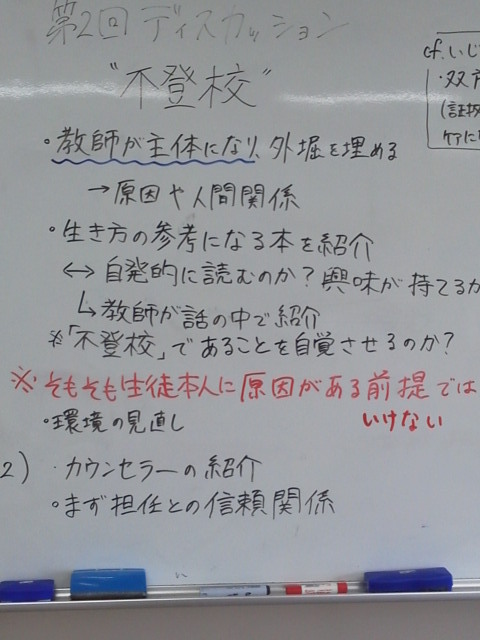 第2回 ディスカッション
"不登校"
・教師が主体になり、外堀を埋める
→原因や人間関係
・生き方の参考になる本を紹介
↔ 自発的に読むのか? 興味が持てるか
↳教師が話の中で紹介
※「不登校」であることを自覚させるのか?
※そもそも生徒本人に原因がある前提では
いけない
・環境の見直し
2) ・カウンセラーの紹介
・まず担任との信頼関係
cf. いじ
・双方
ケアに